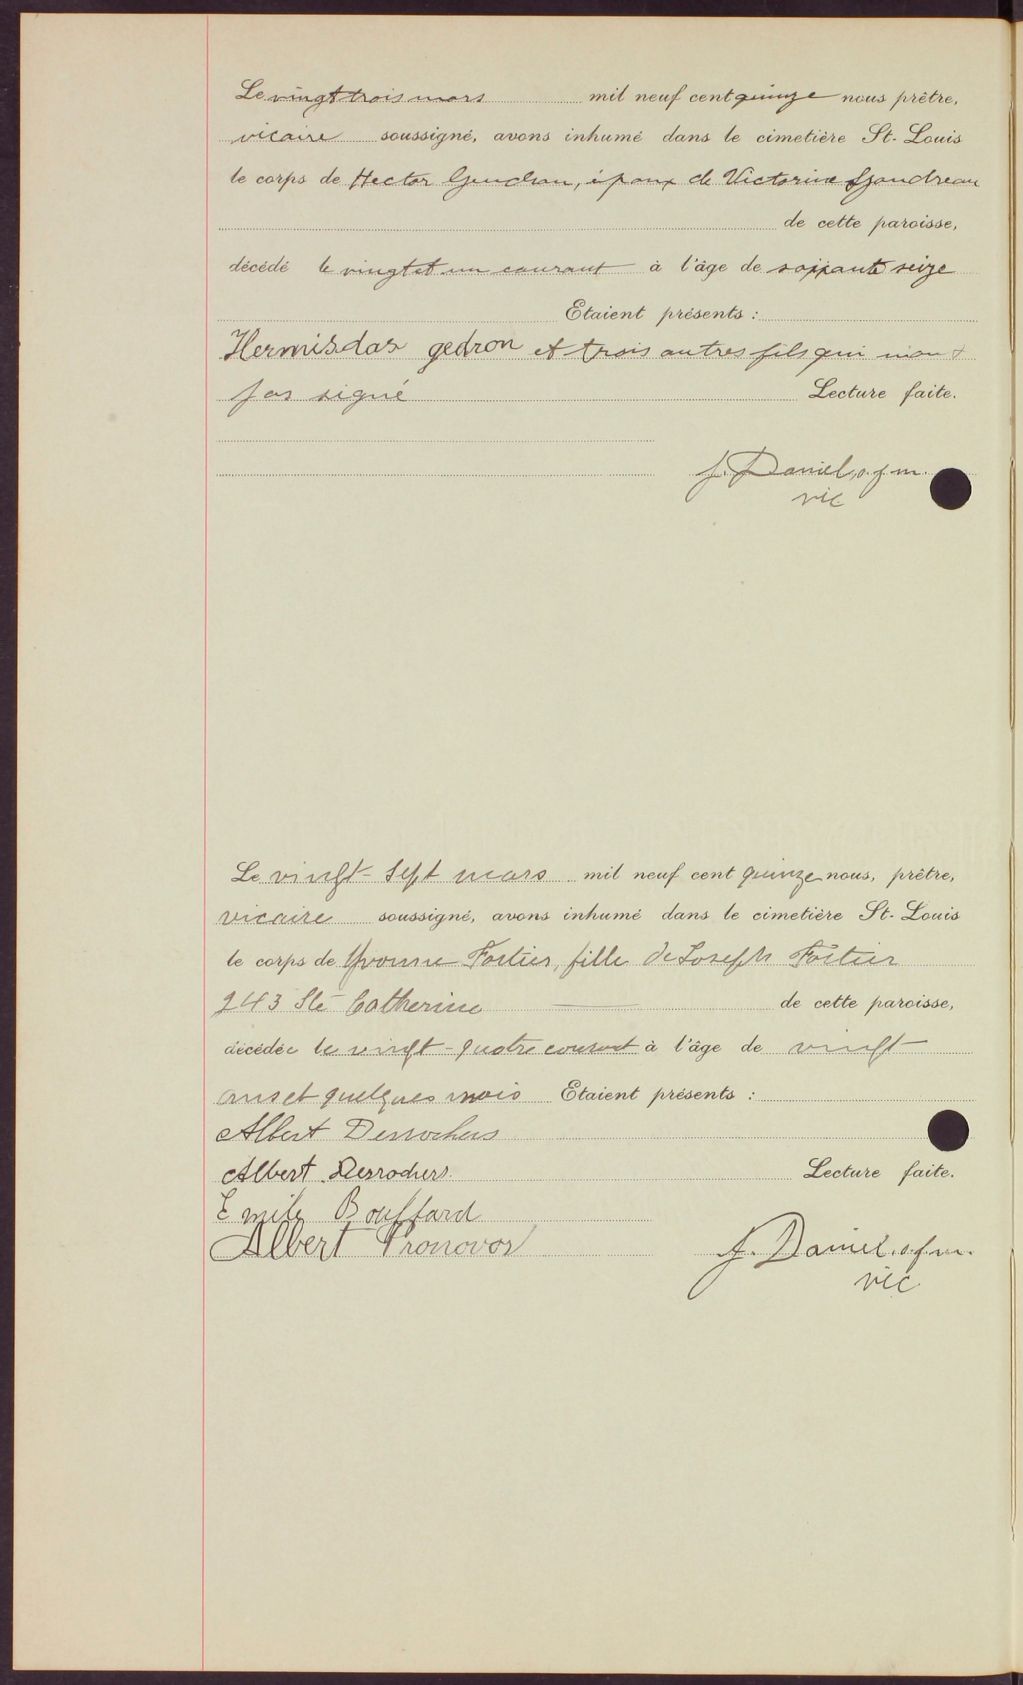 Le vingt trois mars mil neuf cent quinze nous prêtre,
vicaire soussigné, avons inhumé dans le cimetière St-Louis
le corps de Hector Gendron, époux de Victorine Gaudreau
de cette paroisse,
décédé le vingt et un courant à l'âge de soixante seize
Etaient présents :
Hermisdas gedron et trois autres fils qui n'ont
pas signé Lecture faite.
f. Daniel, o.f.m.
vic
Le vingt-sept mars mil neuf cent quinze nous, prêtre,
vicaire soussigné, avons inhumé dans le cimetière St-Louis
le corps de Yvonne Fortier, fille de Joseph Fortier
243 Ste Catherine de cette paroisse,
décédée le vingt-quatre courant à l'âge de vingt
ans et quelques mois Etaient présents :
Albert Desrochers
Albert Desrochers Lecture faite.
Emile Bouffard
Albert Pronovos
f. Daniel. o.f.m.
vic